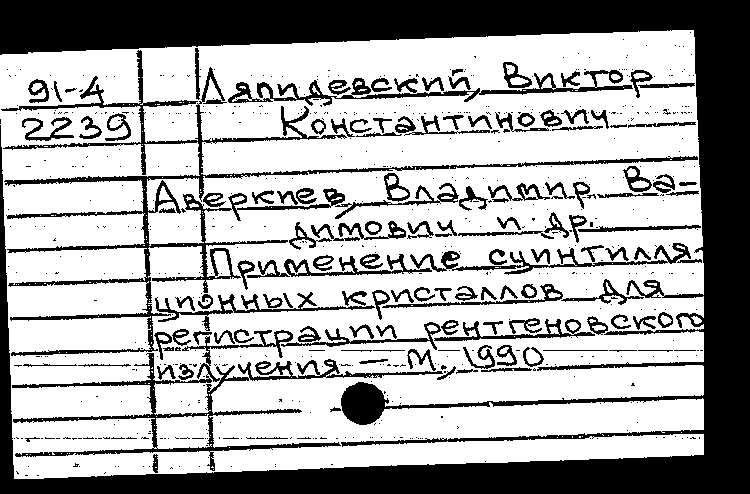 91-4 Ляпидевский, Виктор
2239 Константинович
Аверкиев, Владимир Ва-
димович и др.
Применение сцинтилля-
ционных кристаллов для
регистрации рентгеновского
излучения. — М., 1990